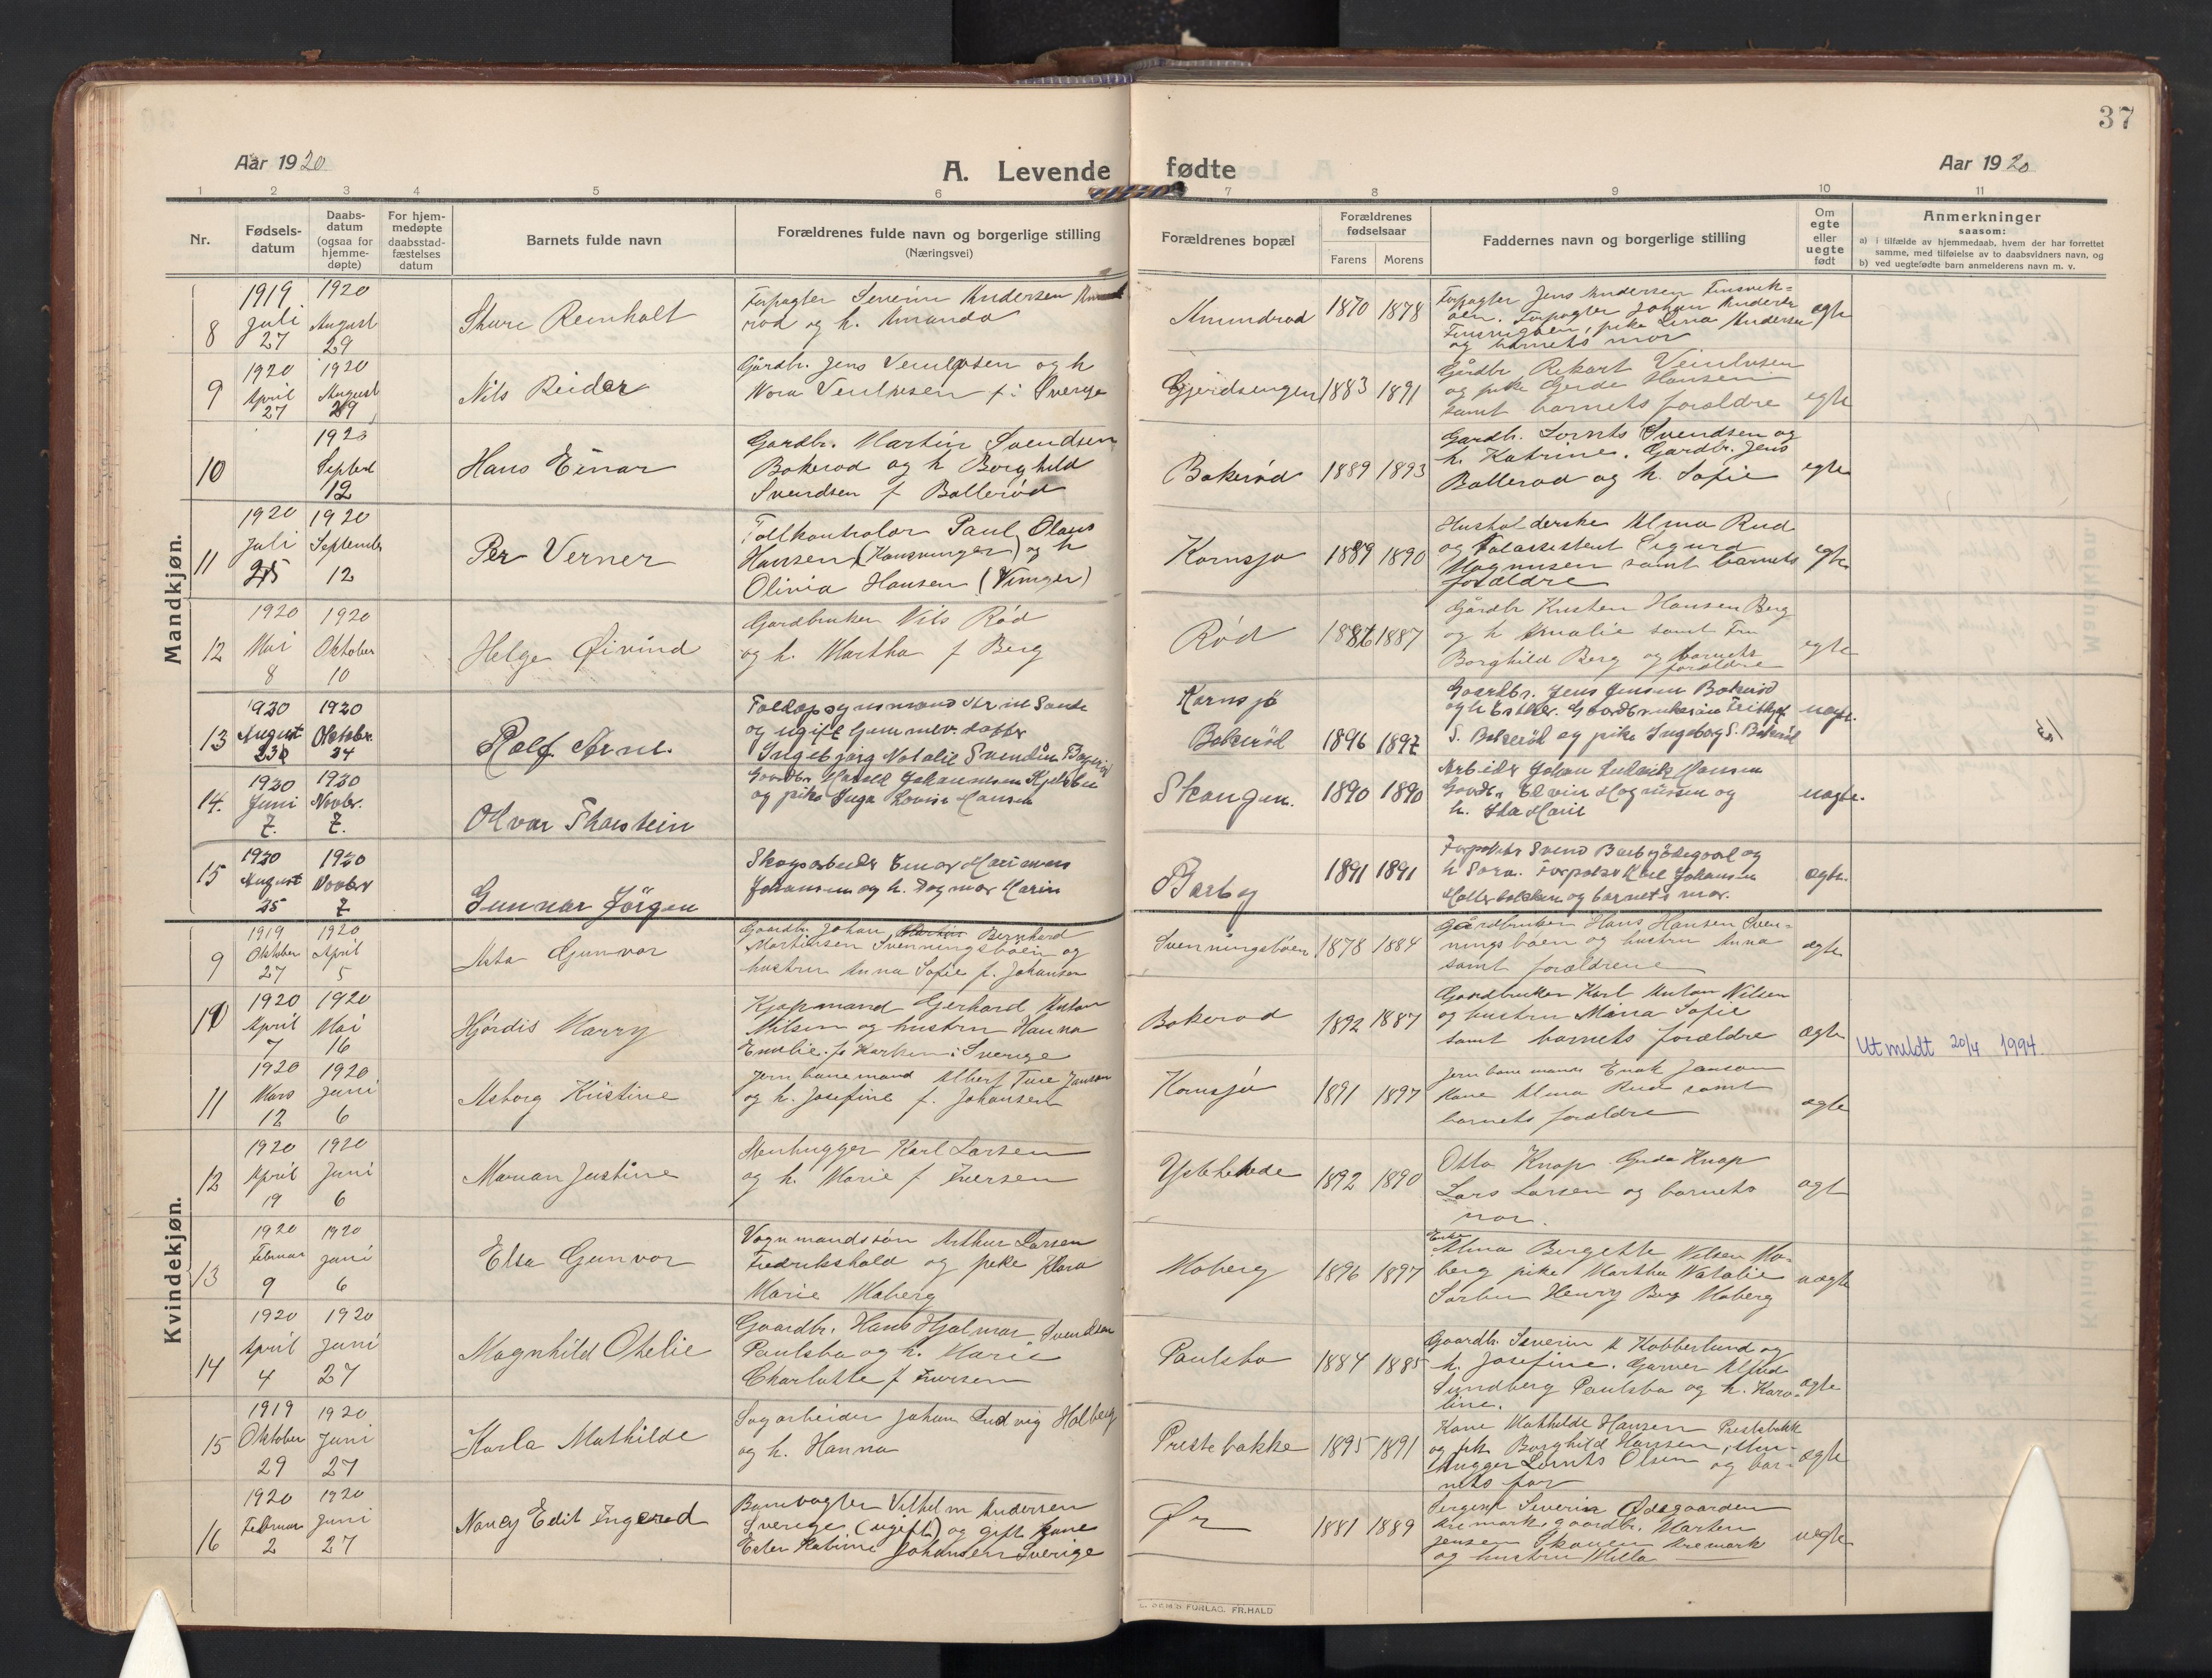 37
Aar 1920
A. Levende fødte
Aar 1920
1 2 3 4 5 6 7 8 9 10 11
Nr.
Fødsels-
datum
Daabs-
datum
(ogsaa for
hjemme-
døpte)
For hjem-
medøpte
daabsstad-
fæstelses
datum
Barnets fulde navn
Forældrenes fulde navn og borgerlige stilling
(Næringsvei)
Forældrenes bopæl
Forældrenes
fødselsaar
Farens Morens
Faddernes navn og borgerlige stilling
Om
egte
eller
uegte
født
Anmerkninger
saasom:
a) i tilfælde av hjemmedaab, hvem der har forrettet
samme, med tilføielse av to daabsvidners navn, og
b) ved uegtefødte barn anmelderens navn m. v.
Mandkjøn.
8
1919
Juli
27
1920
August
29
Sture Reinholt
Forpagter Severin Andersen
rød og h. Amanda
Amundrød
1870 1878
Forpagter Jens Andersen
Forpagter Johan
pike Lina Andersen
og barnets mor
egte
9
1920
April
27
1920
August
29
Nils Reidar
Gårdbr. Jens og h
Nora f. i Sverge
Gjerdsengen
1883 1891
Gårdbr Rikart
og pike Gerda Hansen
samt barnets forældre
egte
10
1920
Septed
12
Hans Einar
Gardbr. Martin Svendsen
Bokerød og h Borghild
Svendsen f Bollerød
Bokerød
1889 1893
Gardbr. Lornts Svendsen og
h. Katrine. Gardbr. Jens
Bollerød og h. Sofie
egte
11
1920
Juli
25
1920
September
12
Per Verner
Tollkontrolør Paul Olaus
Hansen (Kongsvinger) og h
Olivia Hansen (Vinger)
Kornsjø
1889 1890
Husholderske Alma Rud
og Tolassistent Sigurd
Magnusen samt barnets
forældre
egte
12
1920
Mai
8
1920
Oktober
10
Helge Øivind
Gardbruker Nils Rød
og h. Martha f Berg
Rød
1886 1887
Gårdbr Kristen Hansen Berg
og h Amalie samt Fru
Borghild Berg og barnets
forældre
egte
13
1920
August
23
1920
Oktober
24
Rolf Arne.
Toldopsynsmand Arne
og ugift
Ingebjørg Natalie Svendsen
Kornsjø
Bokerød
1896 1897
Gaardbr. Jens Jensen Bokerød
og h Esther.
S. Bokerød og pike Ingeborg S. Bokerød
uegte.
14.
1920
Juni
7.
1920
Novbr.
7.
Olvar Thorstein
Gaardbr Harald Johannesen
og pike Inga Lovise Hansen
Skougen.
1890 1890
Arbeider Johan Hansen
Gaardbr Edvin Magnussen og
h. Ida Marie
uægte.
15
1920
August
25
1920
Novbr
7
Gunnar Jørgen
Skogsarbeider Einar Marinius
Johansen og h. Dagmar Marie
Barby
1891 1891
Forpakter Svend Barbyødegaard og
h Sora. Forpakter Karl Johansen
og barnets mor.
ægte.
Kvindekjøn.
9
1919
Oktober
27
1920
April
5
Asta Gunvor
Gaardbr. Johan Bernhard
Martinsen Svenningsbøen og
hustru Anna Sofie f. Johansen
Svenningsbøen
1878 1884
Gårdbruker Hans Hansen Sven-
ningsbøen og hustru Anna
samt forældrene
ægte
10
1920
April
7
1920
Mai
16
Hjørdis Harry
Kjøpmand Gerhard Anton
Nilsen og hustru Hanna
Emilie f. Karlsen i Sverige
Bokerød
1892 1887
Gaardbruker Karl Anton Nilsen
og hustru Maria Sofie
samt barnets forældre
ægte
Utmeldt 20/4 1994.
11
1920
Mars
12
1920
Juni
6
Asborg Kristine
Jernbanemand Albert Ture Janson
og h. Josefine f. Johansen
Kornsjø
1891 1897
Jernbanemand Enok Janson
Kone Alma Rud samt
barnets forældre
ægte
12
1920
April
19
1920
Juni
6
Marian Justine
Stenhugger Karl Larsen
og h. Marie f Iversen
Ystehede
1892 1890
Otto Knap. Gyda Knap
Lars Larsen og barnets
mor.
ægt
13
1920
Februar
9
1920
Juni
6
Elsa Gunvor
Vognmandssøn Arthur Larsen
Fredrikshald og pike Klara
Marie Moberg
Moberg
1896 1897
Enke
Alma Bergette Nilsen Mo-
berg pike Martha Natalie
Henry Berg Moberg
uægte
14
1920
April
4
1920
Juni
27
Magnhild Otelie
Gaardbr. Hans Hjalmar Svendsen
Paulsbo og h. Marie
Charlotte f Iversen
Paulsbo
1884 1885
Gaardbr. Severin A Kobberlund og
h. Josefine. Garver Alfred
Sundberg Paulsbo og h. Karo-
line.
ægte
15
1919
Oktober
29
1920
Juni
27
Karla Mathilde
Sagarbeider Johan Ludvig Holberg
og h. Hanna
Prestebakke
1895 1891
Kone Mathilde Hansen Prestebakk
og pike Borghild Hansen, sten-
hugger Lornts Olsen og bar-
nets far
ægte
16
1920
Februar
2
1920
Juni
27
Nancy Edit Ingerod
Banevogter Vilhelm Andersen
Sverige (ugift) og gift kone
Ester Katrine Johansen Sverige
Ør
1881 1889
Sergent Severin Ødegaarden
Aremark, gaardbr. Marten
Jensen Skouen Aremark
og hustru Milla
uegte
E. SEM'S FORLAG. FR.HALD